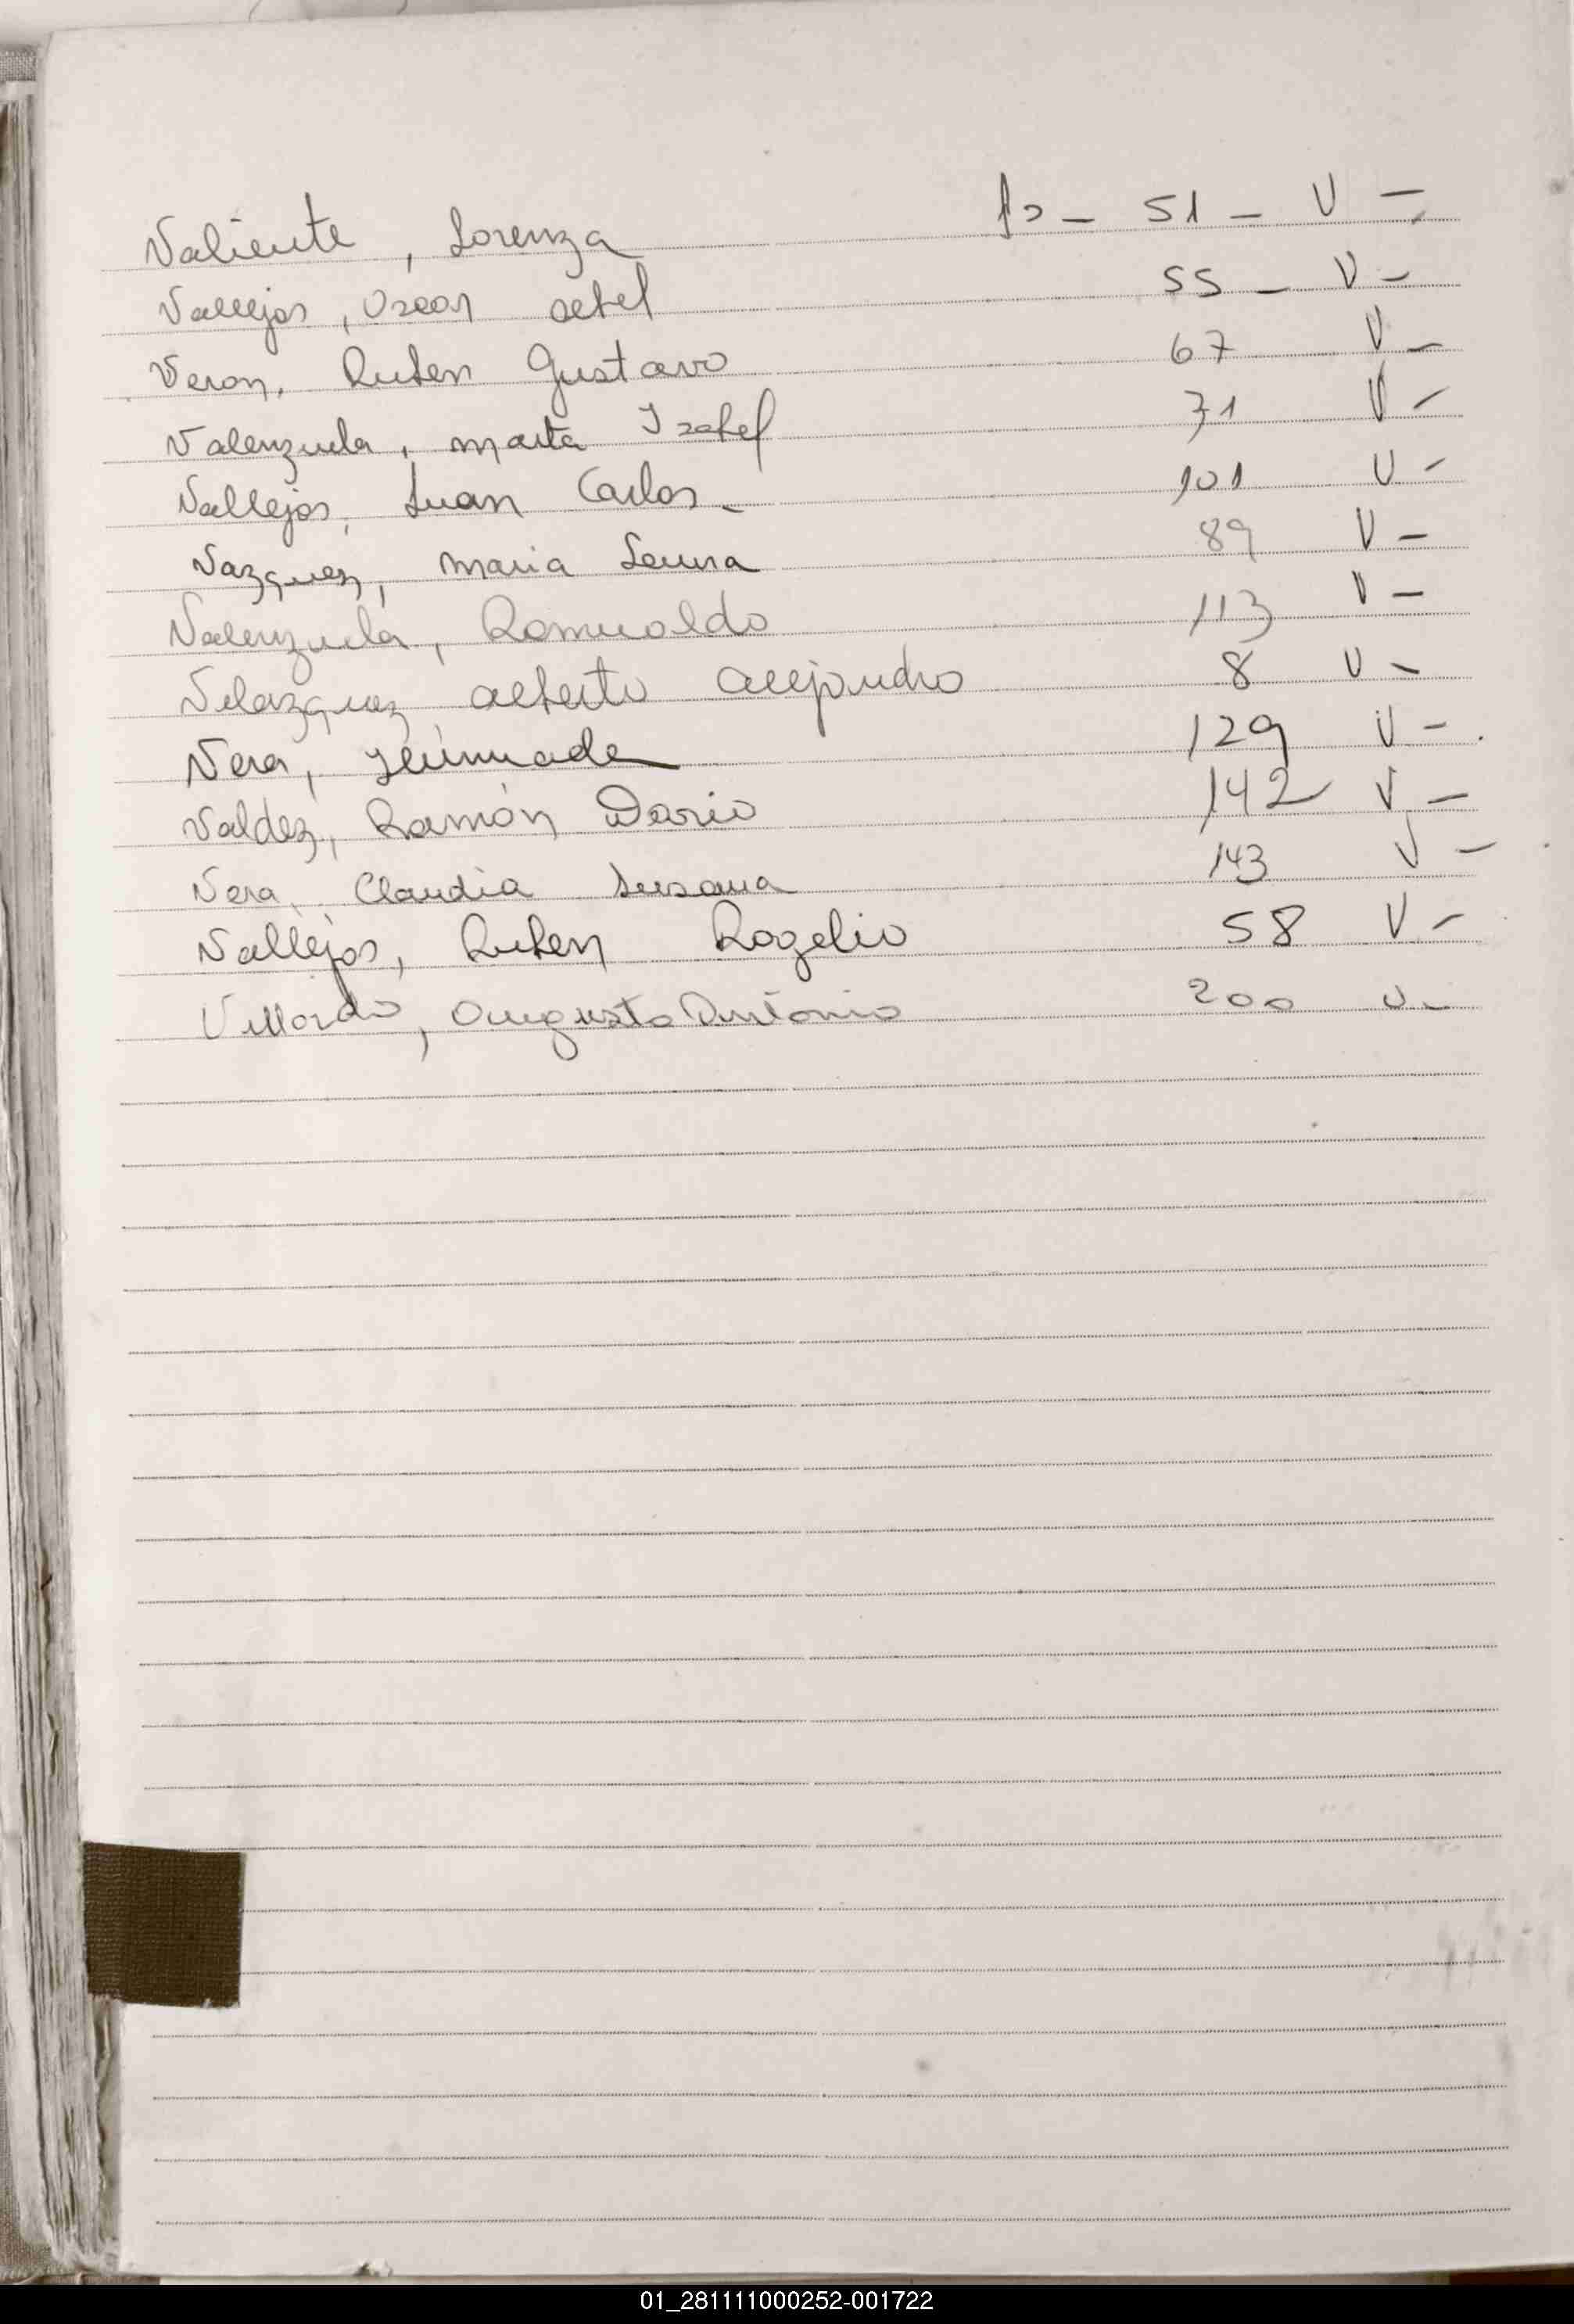 Valiente, Lorenza fo - 51 - V -
Vallejos, Oscar Abel 55 - V -
Veron, Ruben Gustavo 67 V -
Valenzuela, Marta Isabel 71 V -
Vallejos, Juan Carlos - 101 V -
Vazquez, Maria 89 V -
Valenzuela, Romualdo 113 V -
Velazquez, Alberto Alejandro 8 V -
Vera, 129 V -
Valdez, Ramón Dario 142 V -
Vera, Claudia Susana 143 V -
Vallejos, Ruben Rogelio 58 V -
Villordo, Augusto Antonio 200 V -
01_281111000252-001722